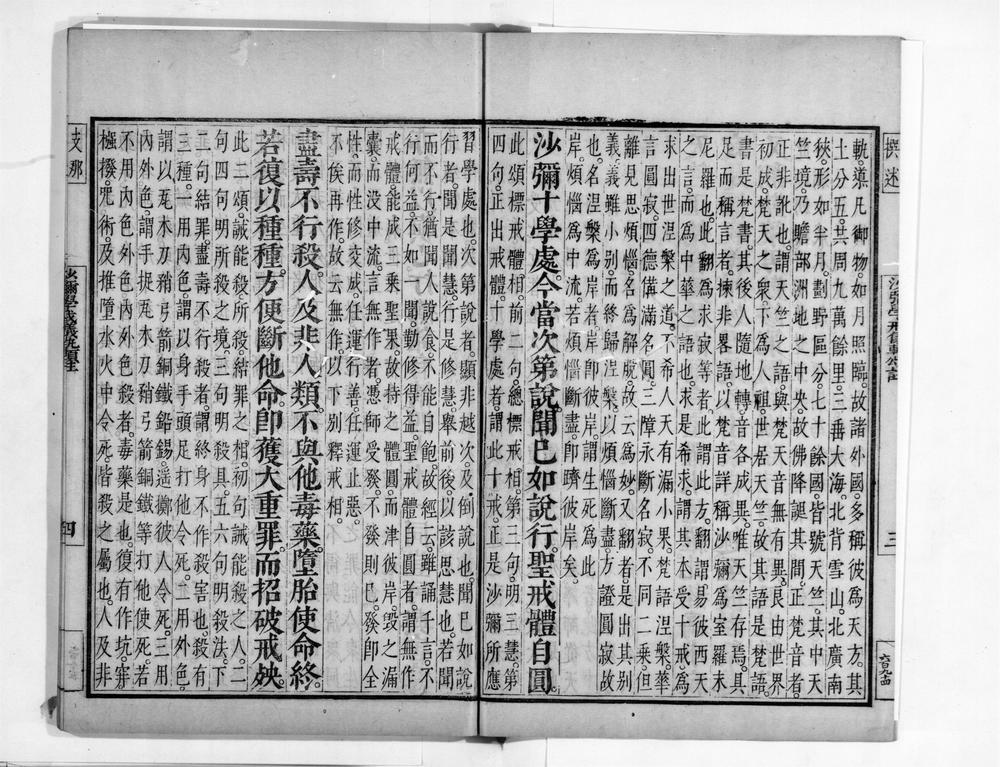 撰述
三
軌導凡御物如月照臨故諸外國多稱彼為天方其
土分五共周九萬餘里三垂大海北背雪山北廣南
狹形如半月劃野區分七十餘國皆號天竺其中天
竺境乃贍部洲地之中央故佛降誕其間正梵音者
正非訛也謂天竺之語與梵天音無有異良由世界
初成梵天之眾下為人祖世居天竺故其語是梵語
書是梵書其後人隨地轉音各成異唯天竺存焉具
足而稱言者揀非畧語以梵音詳稱沙彌為室羅末
尼羅也此翻為求寂等者此謂此方翻謂易彼西天
之言而為中華之語也求是希求謂其本受十戒為
求出世涅槃之道不希人天有漏小果梵語涅槃華
言圓寂四德備滿名圓三障永斷名寂不同二乘但
離見思煩惱名為解脫故云為妙又翻者是出其別
義義雖小別而終歸涅槃以煩惱斷盡方證圓寂故
也名涅槃為岸者岸即彼岸謂生死為此
岸煩惱為中流若煩惱斷盡即躋彼岸矣
沙彌十學處今當次第說聞已如說行聖戒體自圓
此頌標戒體相前二句總標戒相第三句明三慧第
四句正出戒體十學處者謂此十戒正是沙彌所應
支那
沙彌學戒儀軌頌註
四
習學處也次第說者顯非越次及倒說也聞已如說
行者聞是聞慧行是修慧舉前後以該思慧也若聞
而不行猶聞人說食不能自飽故經云雖誦千言不
行何益不如一聞勤修得益聖戒體自圓者謂無作
戒體能成三乘聖果故持之體圓而津彼岸毀之漏
囊而没中流言無作者憑師受發不發則已發即全
性而性修交成任運行善任運止惡
不俟再作故云無作以下別釋戒相
盡壽不行殺人及非人類不與他毒藥墮胎使命終
若復以種種方便斷他命即獲大重罪而招破戒殃
此二頌誡能殺所殺結罪之相初句誡能殺之人二
句四句明所殺之境三句明殺具五六句明殺法下
二句結罪盡壽不行殺者謂終身不作殺害也殺有
三種一用內色謂以身手頭足打他令死二用外色
謂以瓦木刀矟弓箭銅鐵鉛錫遥擲彼人令死三用
內外色謂手捉瓦木刀矟弓箭銅鐵等打他使死若
不用內色外色內外色殺者毒藥是也復有作坑穽
機撥咒術及推墮水火中令死皆殺之屬也人及非